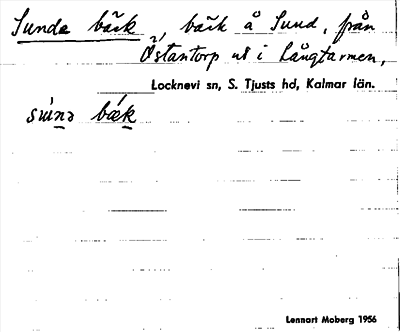 Sunda bäck, bäck å Sund, från
Östantorp ut i Långtarmen,
Locknevi sn, S. Tjusts hd, Kalmar län.
súnə bǽk
Lennart Moberg 1956